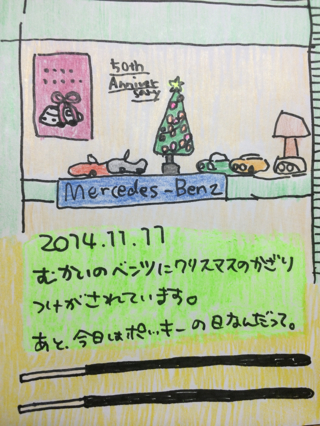 50th
Anniver
sary
Mercedes-Benz
2014.11.11
むかいのベンツにクリスマスのかざり
つけがされています。
あと、今日はポッキーの日なんだって。